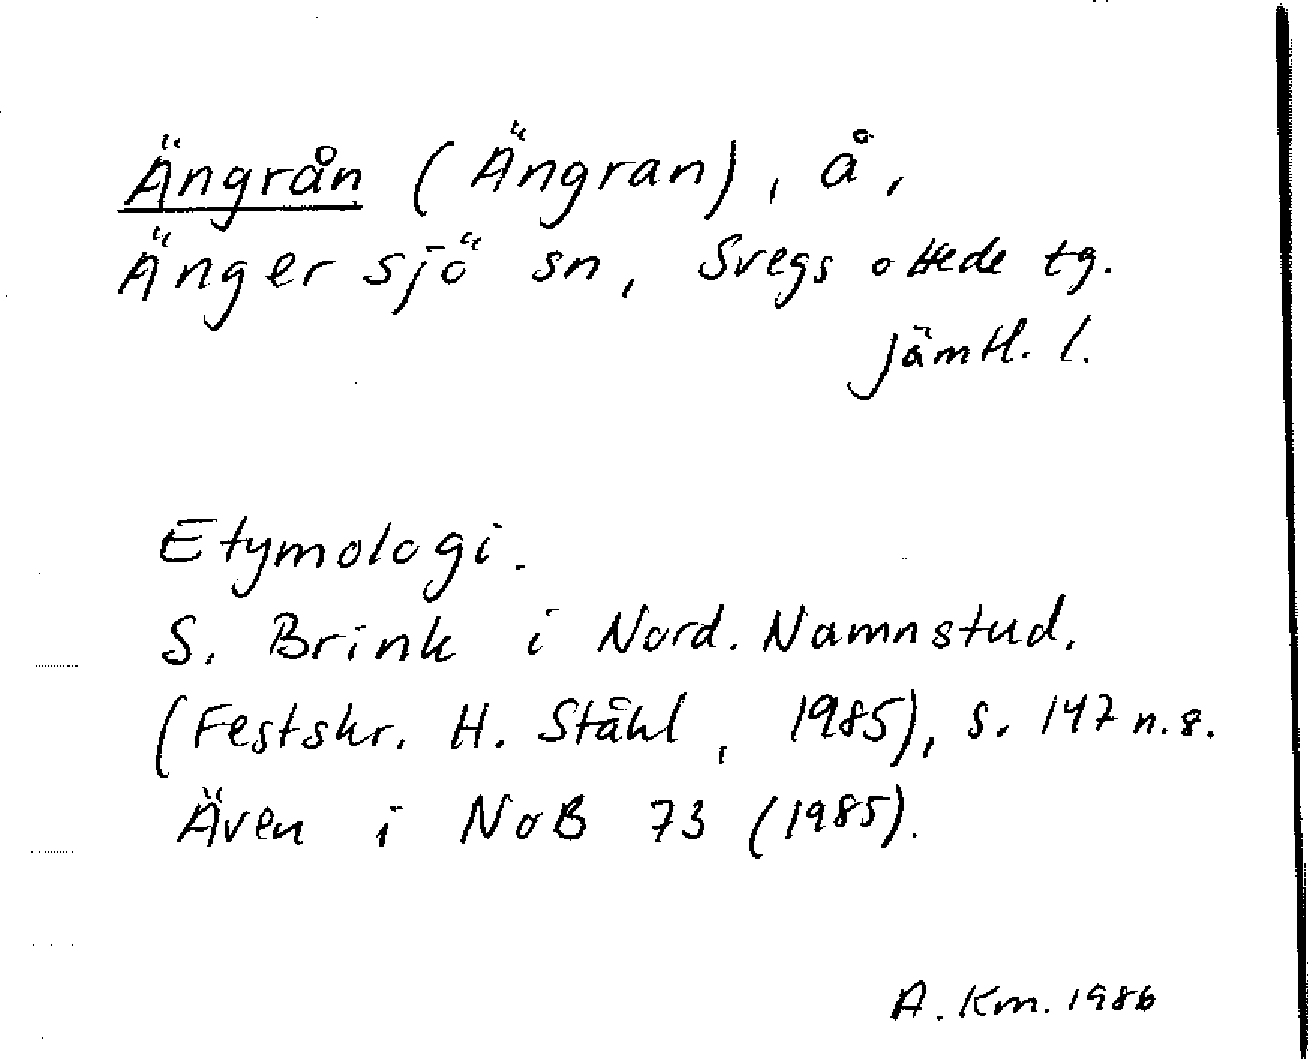 Ängrån (Ängran), å,
Ängersjö sn, Svegs o Hede tg.
Jämtl. l.
Etymologi.
S. Brink i Nord. Namnstud.
(Festskr. H. Ståhl, 1985), s. 147 n. 8.
Även i NoB 73 (1985).
A. Km. 1986